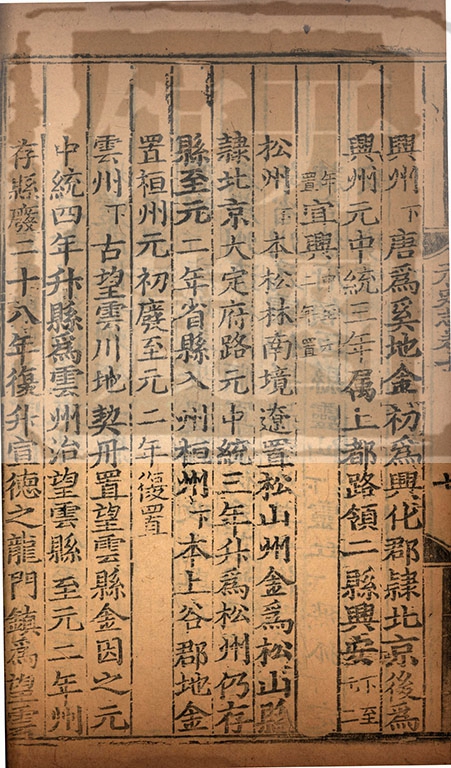 興州下唐爲奚地金初爲興化郡隷北京後爲
興州元中統三年属上都路領二縣興安下至元二
年置宜興中至元二年置
松州下本松林南境遼置松山州金爲松山縣
隷北京大定府路元中統三年升爲松州仍存
縣至元二年省縣入州桓州下本上谷郡地金
置桓州元初廢至元二年復置
雲州下古望雲川地契丹置望雲縣金因之元
中統四年升縣爲雲州治望雲縣至元二年州
存縣廢二十八年復升宣德之龍門鎮爲望雲